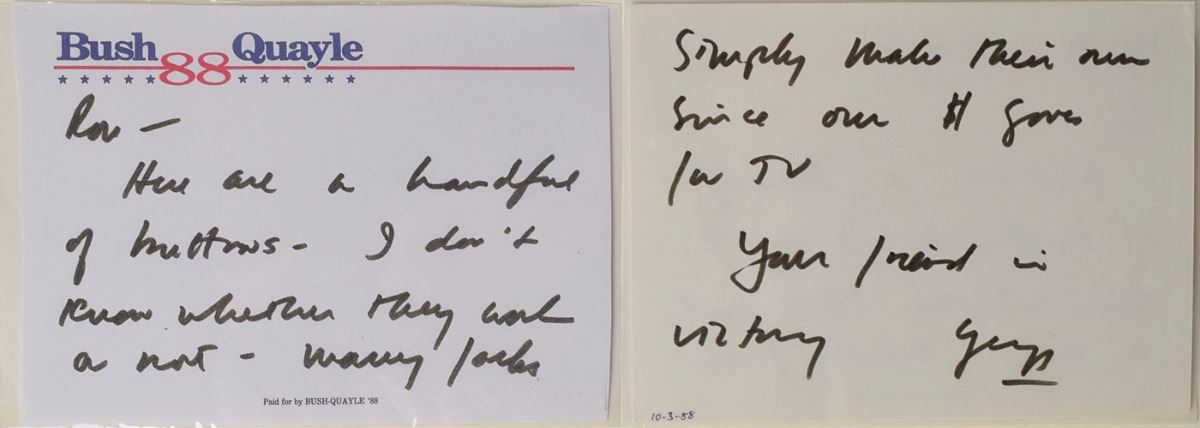 Bush 88 Quayle
Ron —
Here are a handful
of buttons - I don't
know whether they work
or not - many folks
Paid for by BUSH-QUAYLE '88
Simply make their own
since our $ goes
for TV
Your friend in
victory
10-3-88